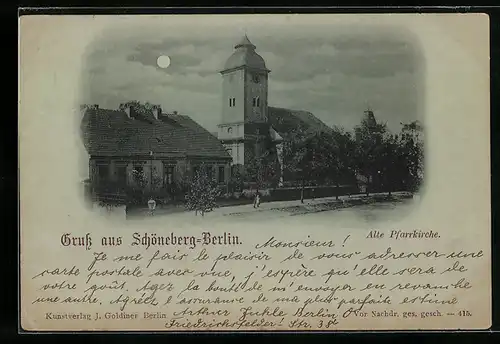 Gruß aus Schöneberg-Berlin.
Alte Pfarrkirche.
Monsieur!
Je me fais le plaisir de vous adresser une
carte portale avec vue, j'espère qu'elle sera de
votre goût. Ayez la bonté de m'envoyer en revanche
une autre. Agréez l'assurance de ma plus parfaite estime
Arthur Berlin O
Friedrichsfelder Str. 38
Kunstverlag J. Goldiner Berlin
Vor Nachdr. ges. gesch. — 415.